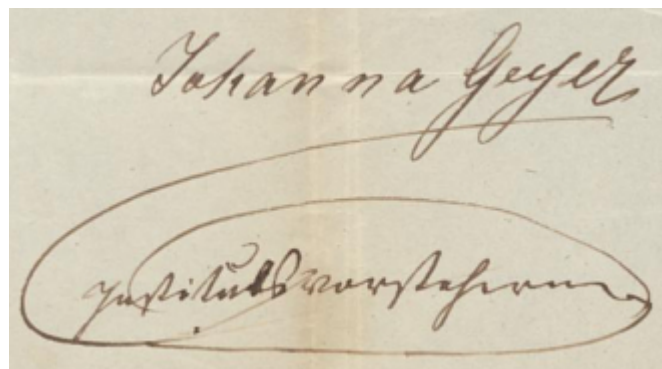 Johanna Geyer
Institutsvorsteherin